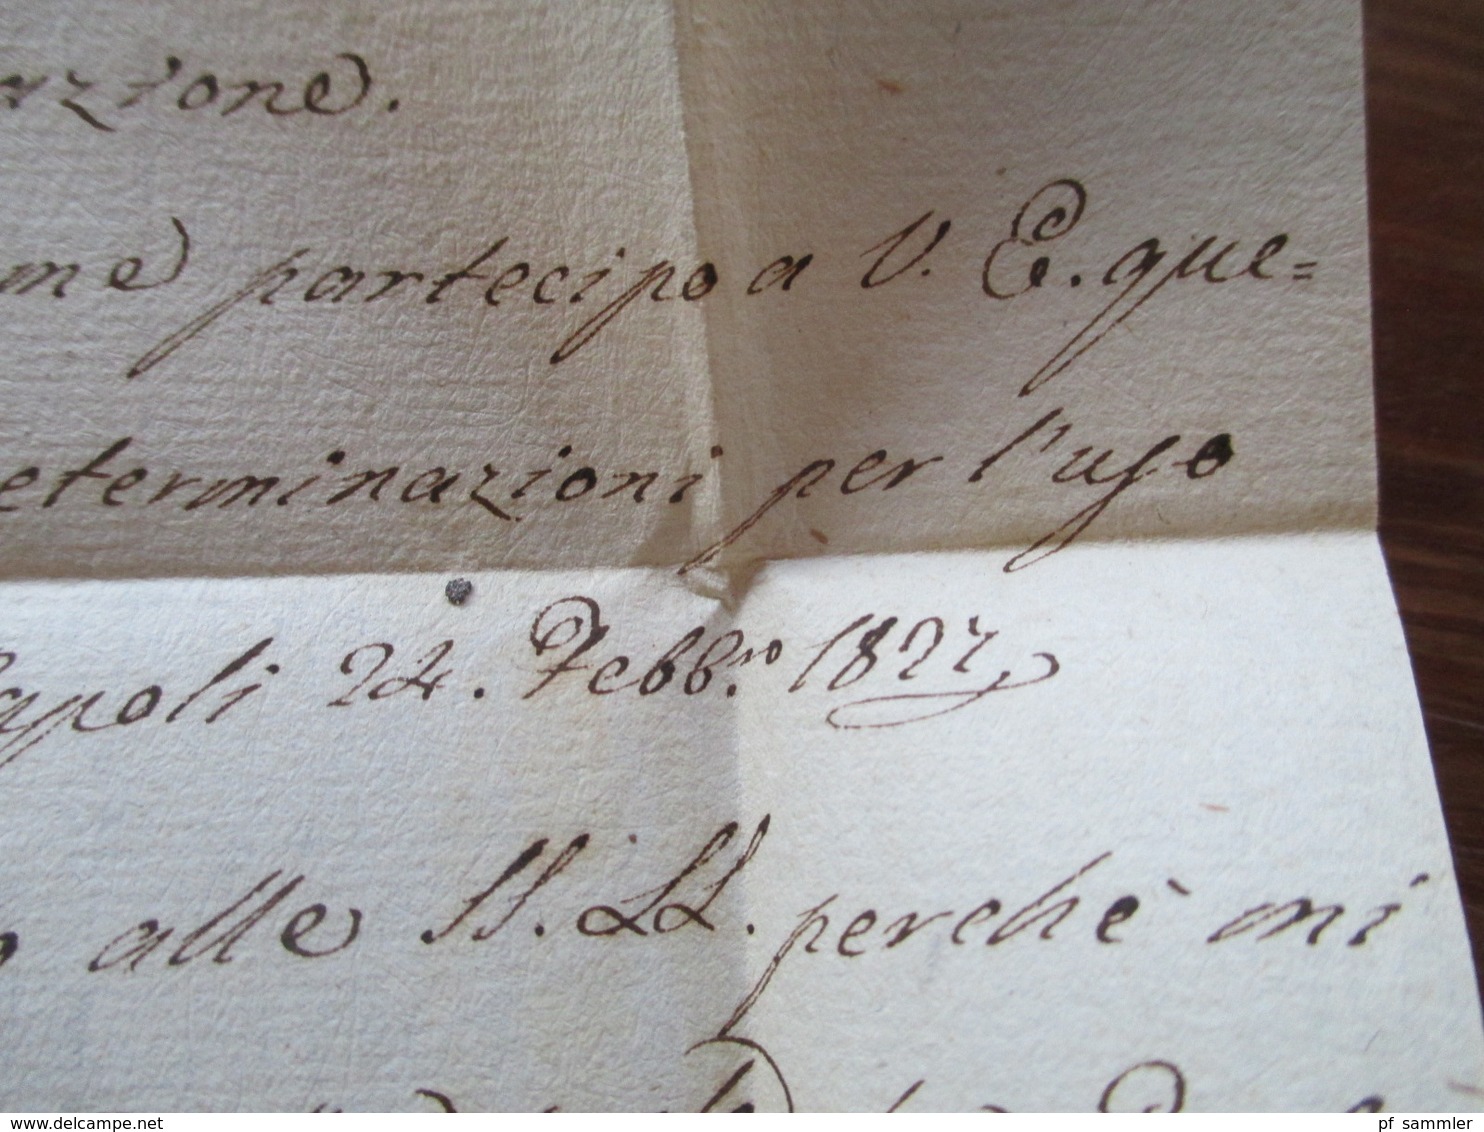 azione.
me partecipo a V. E. que=
eterminazioni per l'uso
apoli 24. Febb.ro 1827
alle SS. LL. perchè mi
www.delcampe.net
pf_sammler